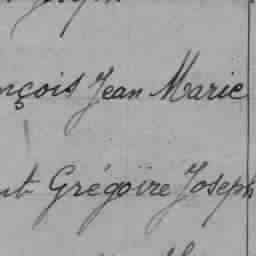 nçois Jean Marie
ut Grégoire Joseph